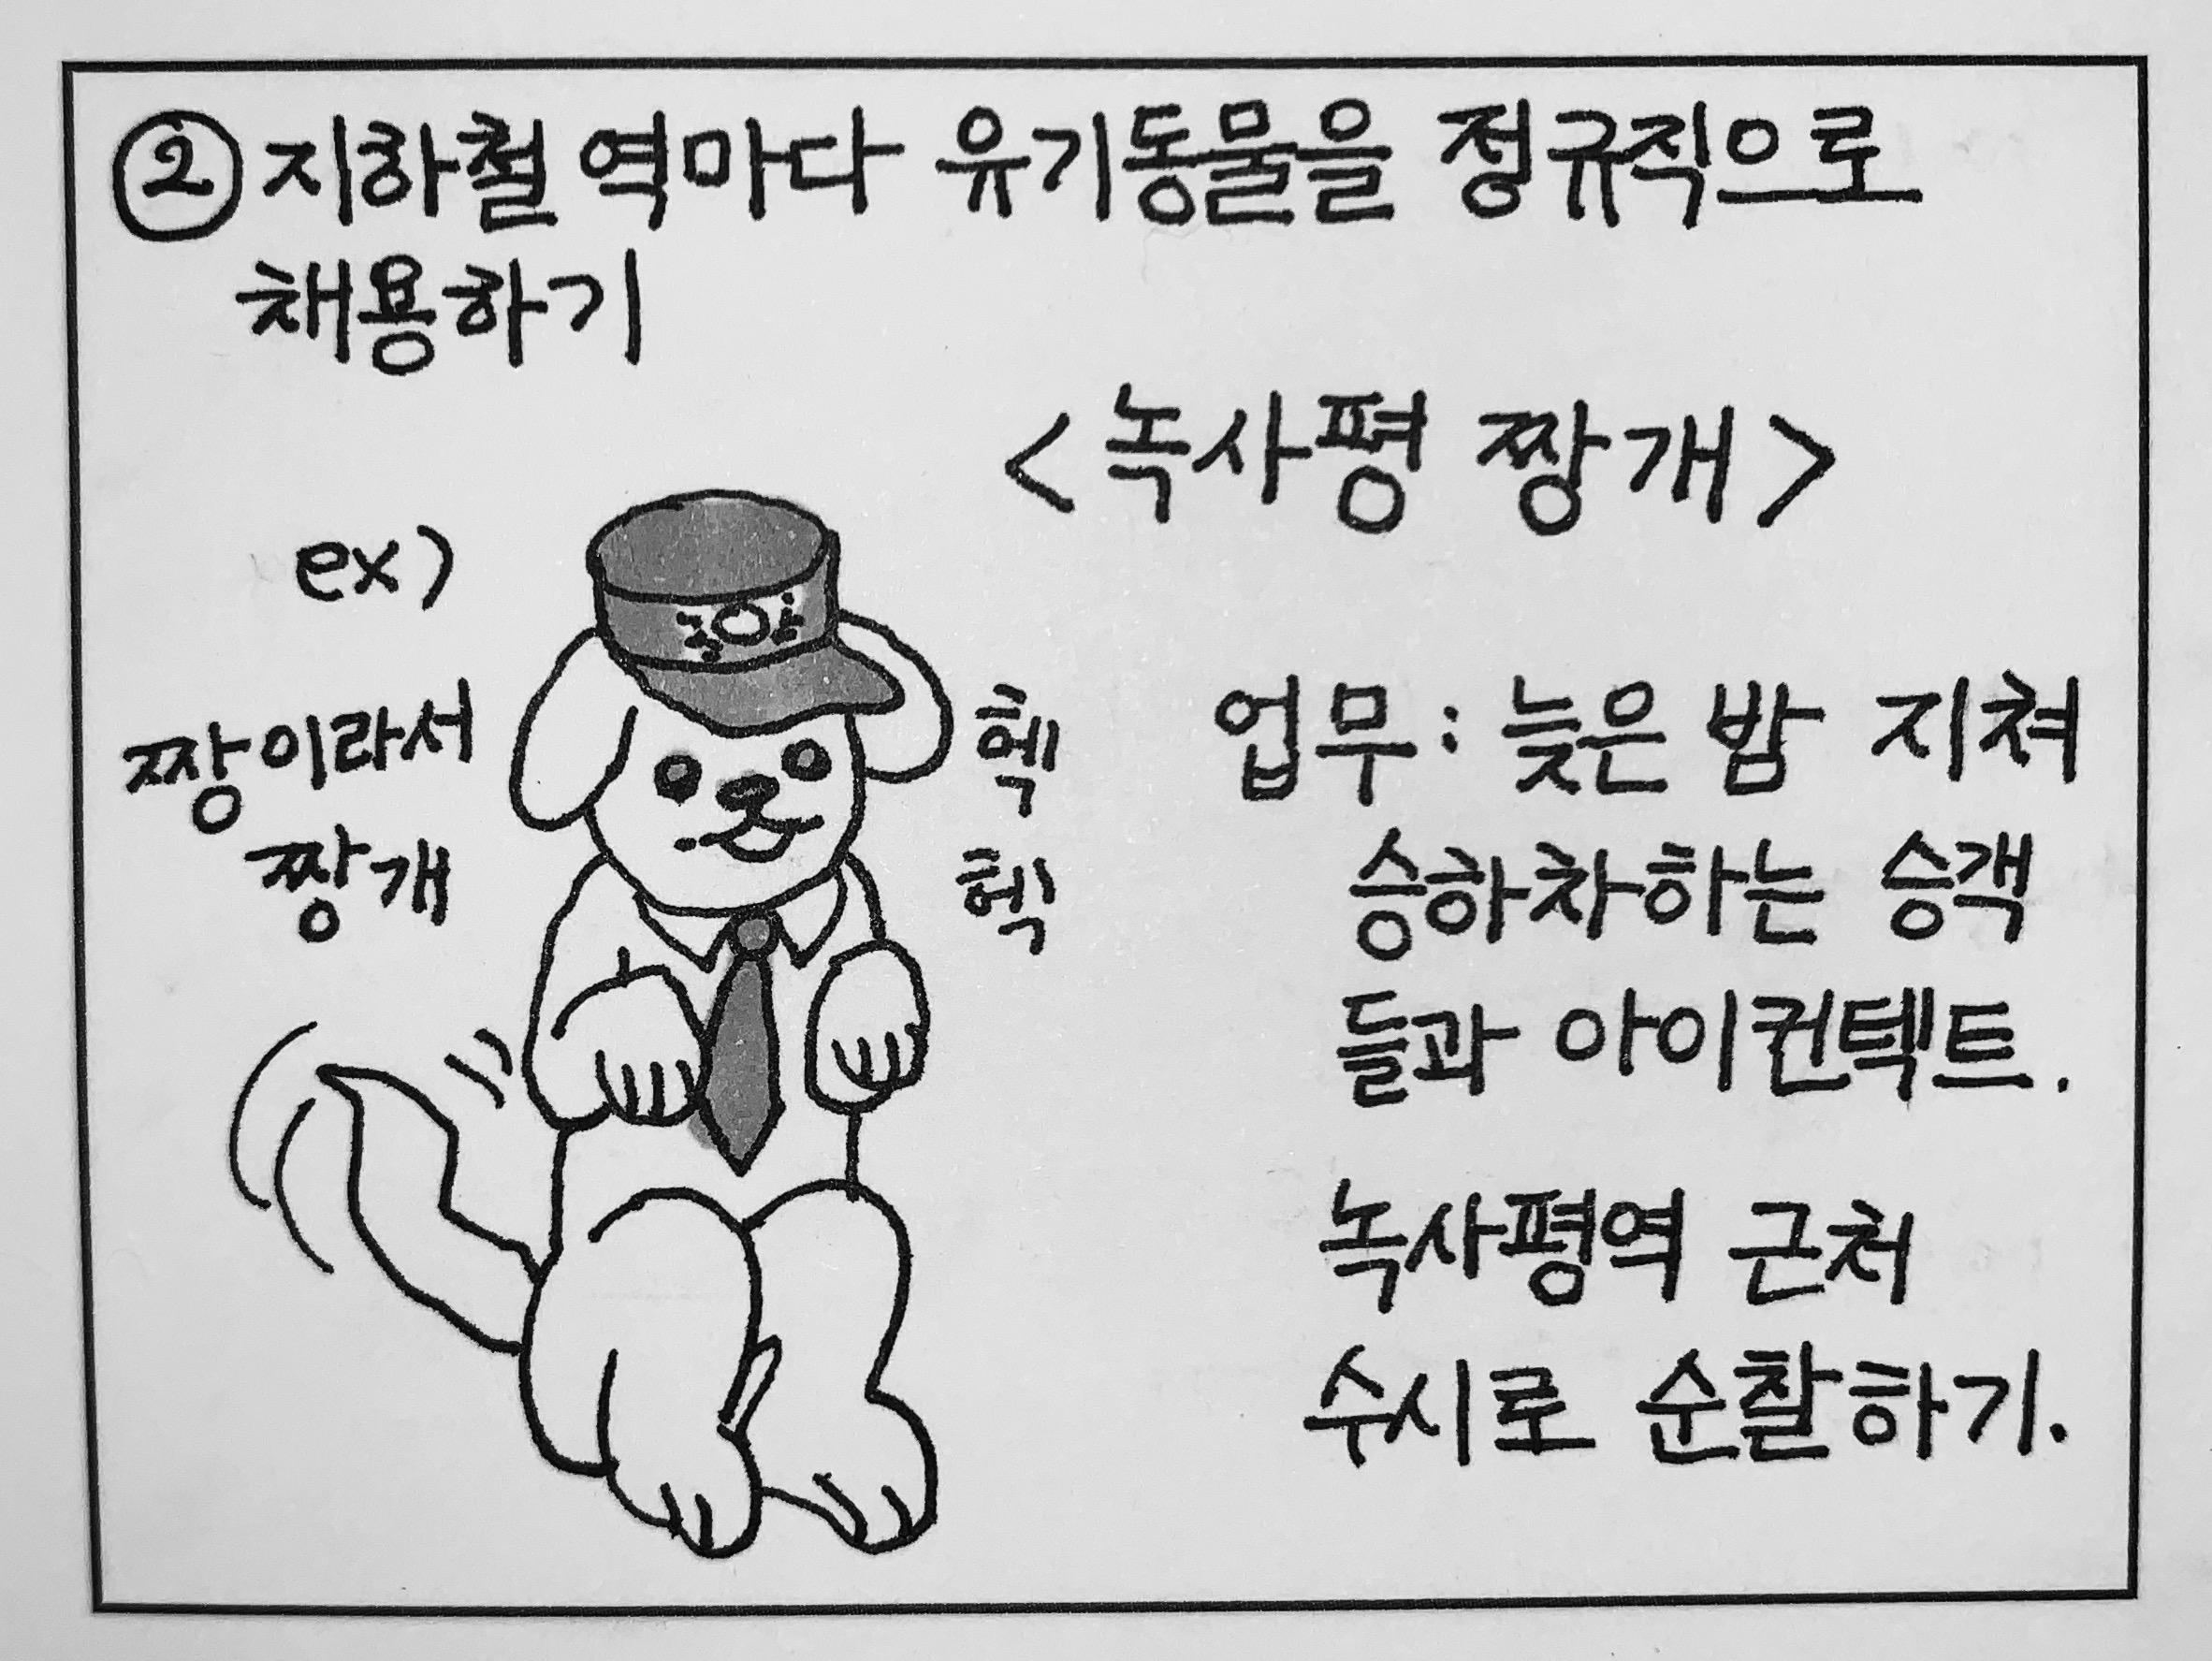 ② 지하철 역마다 유기동물을 정규직으로
채용하기
<녹사평 짱개>
ex)
짱이라서
짱개
헥
헥
업무 : 늦은 밤 지쳐
승하차하는 승객
들과 아이컨텍트.
녹사평역 근처
수시로 순찰하기.